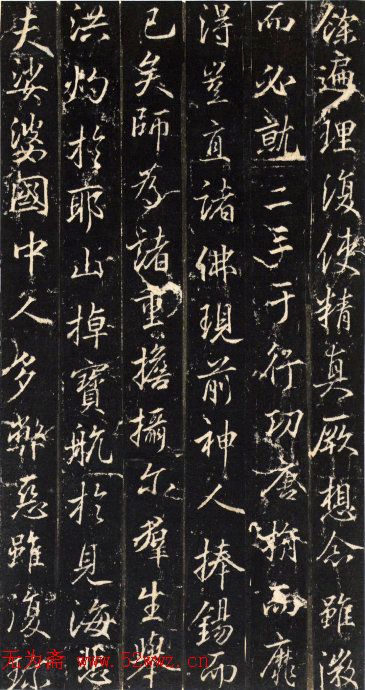 餘遍理復使精真厥想念雖微
而必就二三于行而靡
得豈直諸佛現前神人捧錫而
已矣師為諸重擔攝尔羣生舉
洪灼於耶山掉寶航於見海悲
夫娑婆國中人多弊惡雖復
无为斋 www.52wwz.cn